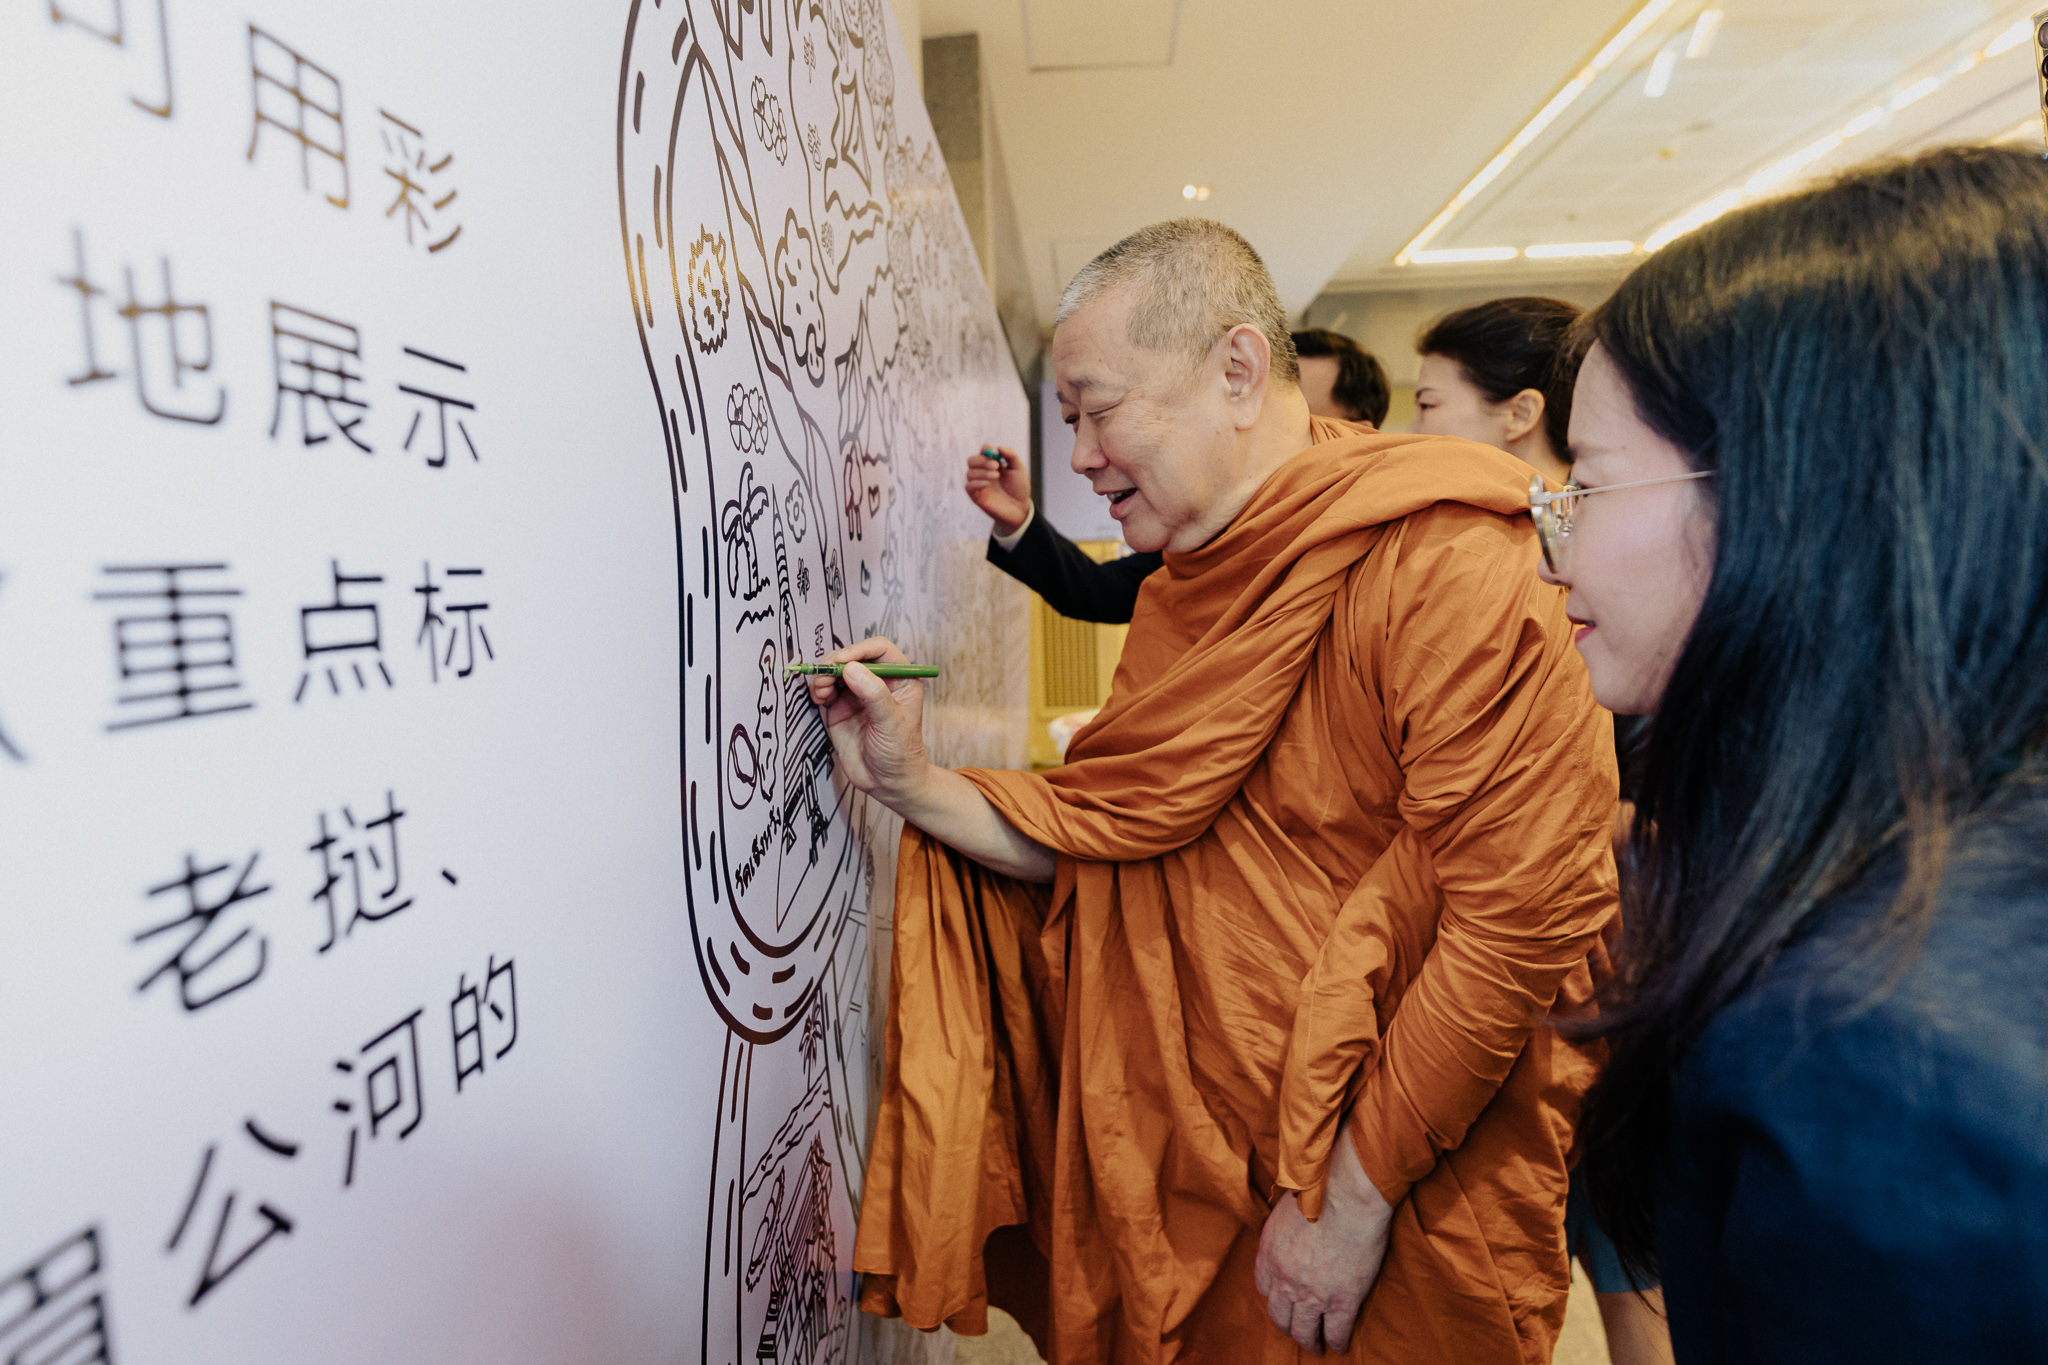 可用彩
地展示
重点标
老挝、
公河的
วัดเชียงทอง